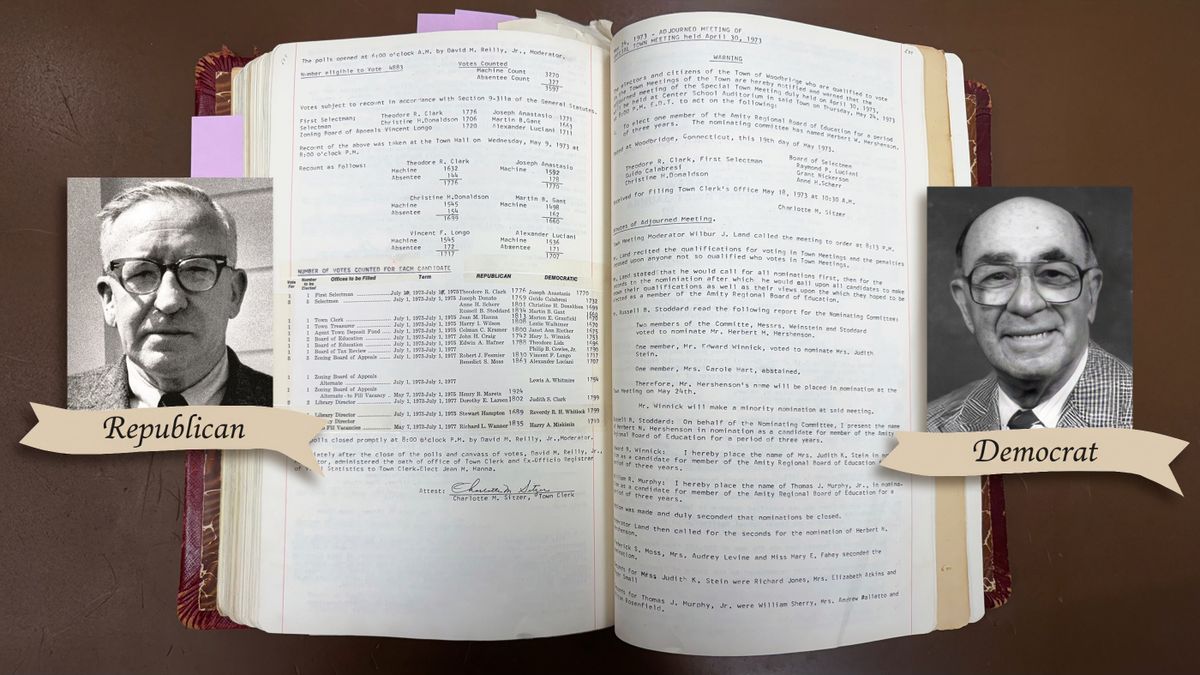 The polls opened at 6:00 o'clock A.M. by David M. Reilly, Jr., Moderator.
Number eligible to Vote 4883
Votes Counted
Machine Count 3270
Absentee Count 327
3597
Votes subject to recount in accordance with Section 9-311a of the General Statutes.
First Selectman: Theodore R. Clark 1776 Joseph Anastasio 1771
Selectman Christine H.Donaldson 1706 Martin B.Gant 1661
Zoning Board of Appeals Vincent Longo 1720 Alexander Luciani 1711
Recount of the above was taken at the Town Hall on Wednesday, May 9, 1973 at
8:00 o'clock P.M.
Recount as Follows:
Theodore R. Clark Joseph Anastasio
Machine 1632 Machine 1592
Absentee 144 178
1776 1770
Christine H.Donaldson Martin B. Gant
Machine 1545 Machine 1498
Absentee 154 162
1699 1660
Vincent F. Longo Alexander Luciani
Machine 1545 Machine 1536
Absentee 172 Absentee 171
1717 1707
NUMBER OF VOTES COUNTED FOR EACH CANDIDATE
Vote For Number to be Elected Offices to be Filled Term REPUBLICAN DEMOCRATIC
1 First Selectman Theodore R. Clark 1776 Joseph Anastasio
Selectmen July 1, 1973-July 1, 1975 Joseph Donato 1759 Guido Calabresi
Anne H. Scherr 1801 Christine H. Donaldson
Russell B. Stoddard 1834 Martin B. Gant
1 Town Clerk July 1, 1973-July 1, 1975 Jean M. Hanna 1813
1 Town Treasurer July 1, 1973-July 1, 1975 Harry I. Wilson
Agent Town Deposit Fund July 1, 1973-July 1, 1975 Colman C. Kramer 1800
Board of Education July 1, 1973-July 1, 1977 John H. Craig 1742 Mary L. Winnick
Board of Education Edwin A. Hafner 1788 Theodore Lidz
Board of Tax Review Philip B. Cowles, Jr.
Zoning Board of Appeals July 1, 1973-July 1, 1977 Robert J. Fesmier 1830 Vincent F. Longo 1717
Benedict S. Moss 1863 Alexander Luciani 1707
Zoning Board of Appeals
Alternate July 1, 1973-July 1, 1977 Lewis A. Whitmire 1794
Zoning Board of Appeals
Alternate-to Fill Vacancy May 7, 1973-July 1, 1975 Henry B. Maretz 1924
Library Director July 1, 1973-July 1, 1977 Dorothy E. Larson 1802 Judith S. Clark 1799
Library Director July 1, 1973-July 1, 1977 Stewart Hampton 1689 Reverdy R. H. Whitlock 1799
Fill Vacancies May 7, 1973-July 1, 1977 Richard L. Wanner 1835 Harry A. Miskimin
polls closed promptly at 8:00 o'clock P.M. by David M. Reilly, Jr., Moderator.
after the close of the polls and canvass of votes, David M. Reilly, Jr.,
administered the oath of office of Town Clerk and Ex-Officio Registrar
Statistics to Town Clerk-Elect Jean M. Hanna.
Attest: Charlotte M. Sitzer
Charlotte M. Sitzer, Town Clerk
1973 - ADJOURNED MEETING OF
TOWN MEETING held April 30, 1973
WARNING
electors and citizens of the Town of Woodbridge who are qualified to vote
Town Meetings of the Town are hereby notified and warned that the
adjourned meeting of the Special Town Meeting duly held on April 30, 1973,
be held at Center School Auditorium in said Town on Thursday, May 24, 1973
8:00 P.M. E.D.T. to act on the following:
To elect one member of the Amity Regional Board of Education for a period
of three years. The nominating committee has named Herbert W. Hershenson.
at Woodbridge, Connecticut, this 19th day of May 1973.
Theodore R. Clark, First Selectman Board of Selectmen
Guido Calabresi Raymond P. Luciani
Christine H.Donaldson Grant Nickerson
Anne H.Scherr
for Filing Town Clerk's Office May 18, 1973 at 10:30 A.M.
Charlotte M. Sitzer
of Adjourned Meeting.
Meeting Moderator Wilbur J. Land called the meeting to order at 8:13 P.M.
Land recited the qualifications for voting in Town Meetings and the penalties
upon anyone not so qualified who votes in Town Meetings.
Land stated that he would call for all nominations first, then for the
seconds to the nomination after which he would call upon all candidates to make
known their qualifications as well as their views upon the which they hoped to be
elected as a member of the Amity Regional Board of Education.
Russell B. Stoddard read the following report for the Nominating Committee:
Two members of the Committe, Messrs. Weinstein and Stoddard
voted to nominate Mr. Herbert M. Hershenson.
One member, Mr. Edward Winnick, voted to nominate Mrs. Judith
Stein.
One member, Mrs. Carole Hart, abstained,
Therefore, Mr. Hershenson's name will be placed in nomination at the
Town Meeting on May 24th.
Mr. Winnick will make a minority nomination at said meeting.
B. Stoddard: On behalf of the Nominating Committee, I present the name
Herbert N. Hershenson in nomination as a candidate for member of the Amity
Regional Board of Education for a period of three years.
Winnick: I hereby place the name of Mrs. Judith K. Stein in
as a candidate for member of the Amity Regional Board of Education
of three years.
R. Murphy: I hereby place the name of Thomas J. Murphy, Jr., in nomina-
as a candidate for member of the Amity Regional Board of Education for a
of three years.
was made and duly seconded that nominations be closed.
Land then called for the seconds for the nomination of Herbert N.
S. Moss, Mrs. Audrey Levine and Miss Mary E. Fahey seconded the
for Mrs. Judith K. Stein were Richard Jones, Mrs. Elizabeth Atkins and
Small
for Thomas J. Murphy, Jr. were William Sherry, Mrs. Andrew Malletto and
Rosenfield.
Republican
Democrat